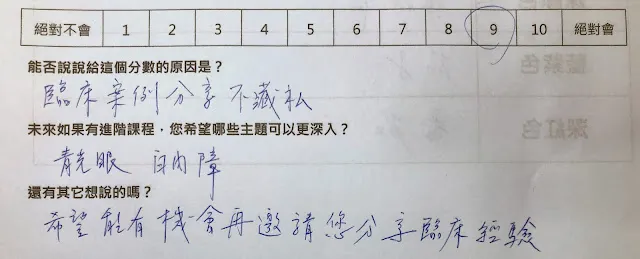 絕對不會 1 2 3 4 5 6 7 8 9 10 絕對會
能否說說給這個分數的原因是？
臨床案例分享不藏私
未來如果有進階課程，您希望哪些主題可以更深入？
青光眼 白內障
還有其它想說的嗎？
希望能有機會再邀請您分享臨床經驗